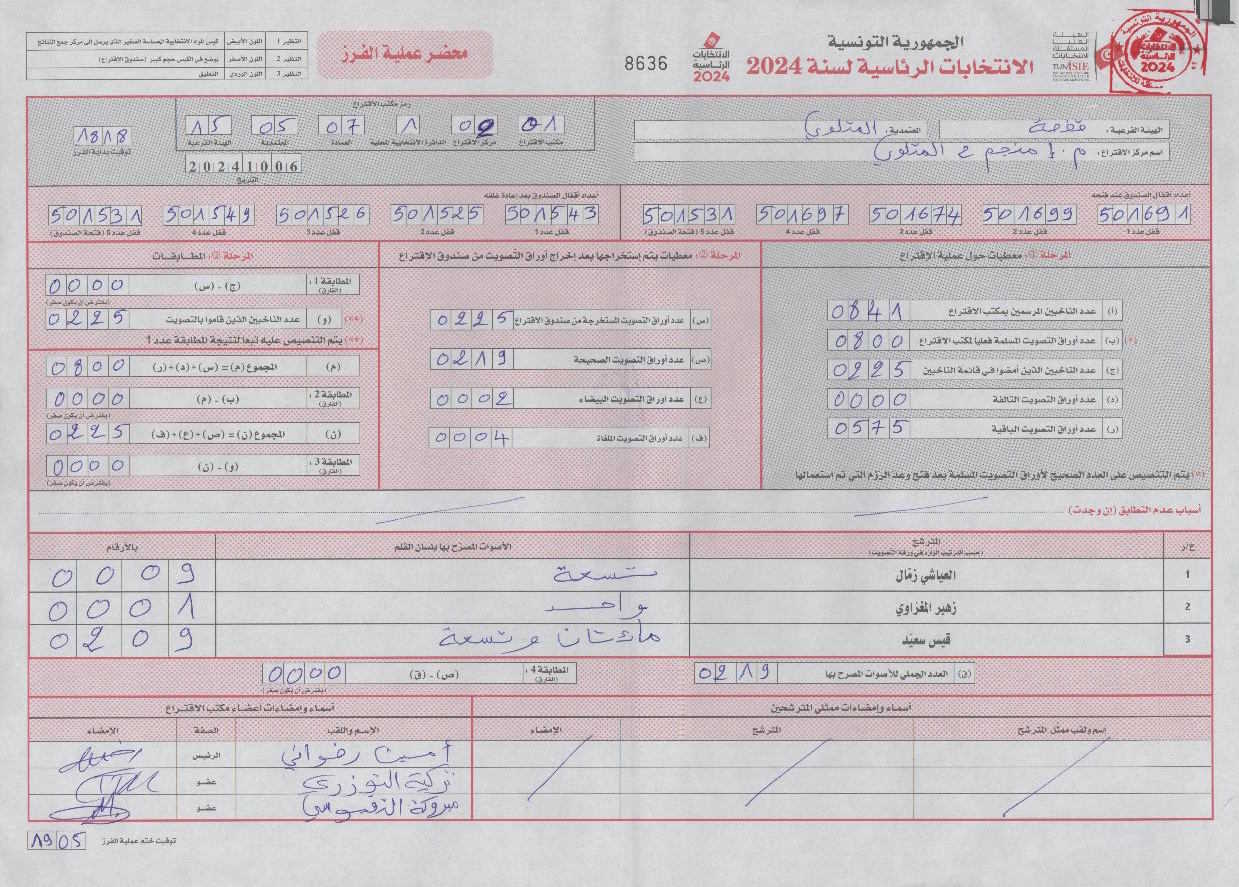 الجمهورية التونسية
الانتخابات الرئاسية لسنة 2024
الهيئة
العليا
المستقلة
للانتخابات
TUNISIE
الانتخابات
الرئاسية
2024
8636
محضر عملية الفرز
النظير 1 اللون الأبيض
النظير 2 اللون الأصفر
النظير 3 اللون الوردي التعليق
الهيئة الفرعية: قفصة
العتمدية: المتلوي
اسم مركز الاقتراع: م. إ منجم ع المتلوي
رمز مكتب الاقتراع
01 02 1 07 05 15
مكتب الاقتراع مركز الاقتراع الدائرة الانتخابية المحلية العمادة المعتمدية الهيئة الفرعية
20241006
التاريخ
1818
توقيت بداية الفرز
أعداد أقفال الصندوق عند فتحه
501691 501699 501674 501697 501531
قفل عدد 1 قفل عدد 2 قفل عدد 3 قفل عدد 4 قفل عدد 5 (فتحة الصندوق)
أعداد أقفال الصندوق بعد إعادة غلقه
501543 501525 501526 501549 501531
قفل عدد 1 قفل عدد 2 قفل عدد 3 قفل عدد 4 قفل عدد 5 (فتحة الصندوق)
المرحلة ①: معطيات حول عملية الإقتراع
(أ) عدد الناخبين المرسمين بمكتب الاقتراع 0841
(*) (ب) عدد أوراق التصويت المسلمة فعليا لمكتب الاقتراع 0800
(ج) عدد الناخبين الذين أمضوا في قائمة الناخبين 0225
(د) عدد أوراق التصويت التالفة 0000
(ر) عدد أوراق التصويت الباقية 0575
(*) يتم التنصيص على العدد الصحيح لأوراق التصويت المسلمة بعد فتح وعد الرزم التي تم استعمالها
المرحلة ②: معطيات يتم إستخراجها بعد إخراج أوراق التصويت من صندوق الاقتراع
(س) عدد أوراق التصويت المستخرجة من صندوق الاقتراع 0225
(ص) عدد أوراق التصويت الصحيحة 0219
(ع) عدد أوراق التصويت البيضاء 0002
(ف) عدد أوراق التصويت الملغاة 0004
المرحلة ③: المطابقات
المطابقة 1: (الفارق) (ج) - (س) 0000
(يفترض أن يكون صفر)
(**) (و) عدد الناخبين الذين قاموا بالتصويت 0225
(**) يتم التنصيص عليه تبعا لنتيجة المطابقة عدد 1
(م) المجموع (م) = (س) + (د) + (ر) 0800
المطابقة 2: (الفارق) (ب) - (م) 0000
(يفترض أن يكون صفر)
(ن) المجموع (ن) = (ص) + (ع) + (ف) 0225
المطابقة 3: (الفارق) (و) - (ن) 0000
(يفترض أن يكون صفر)
أسباب عدم التطابق (إن وجدت)
ع/ر المترشح الأصوات المصرح بها بلسان القلم بالأرقام
(حسب الترتيب الوارد في ورقة التصويت)
1 العياشي زمّال تسعة 0009
2 زهير المغزاوي واحد 0001
3 قيس سعيّد مائتان وتسعة 0209
(ق) العدد الجملي للأصوات المصرح بها 0219
المطابقة 4: (الفارق) (ص) - (ق) 0000
(يفترض أن يكون صفر)
أسماء وإمضاءات ممثلي المترشحين
اسم ولقب ممثل المترشح المترشح الإمضاء
أسماء وإمضاءات أعضاء مكتب الاقتراع
الاسم واللقب الصفة الإمضاء
أمين رضواني الرئيس
تركية التوزري عضو
مبروكة عضو
توقيت ختم عملية الفرز 1905